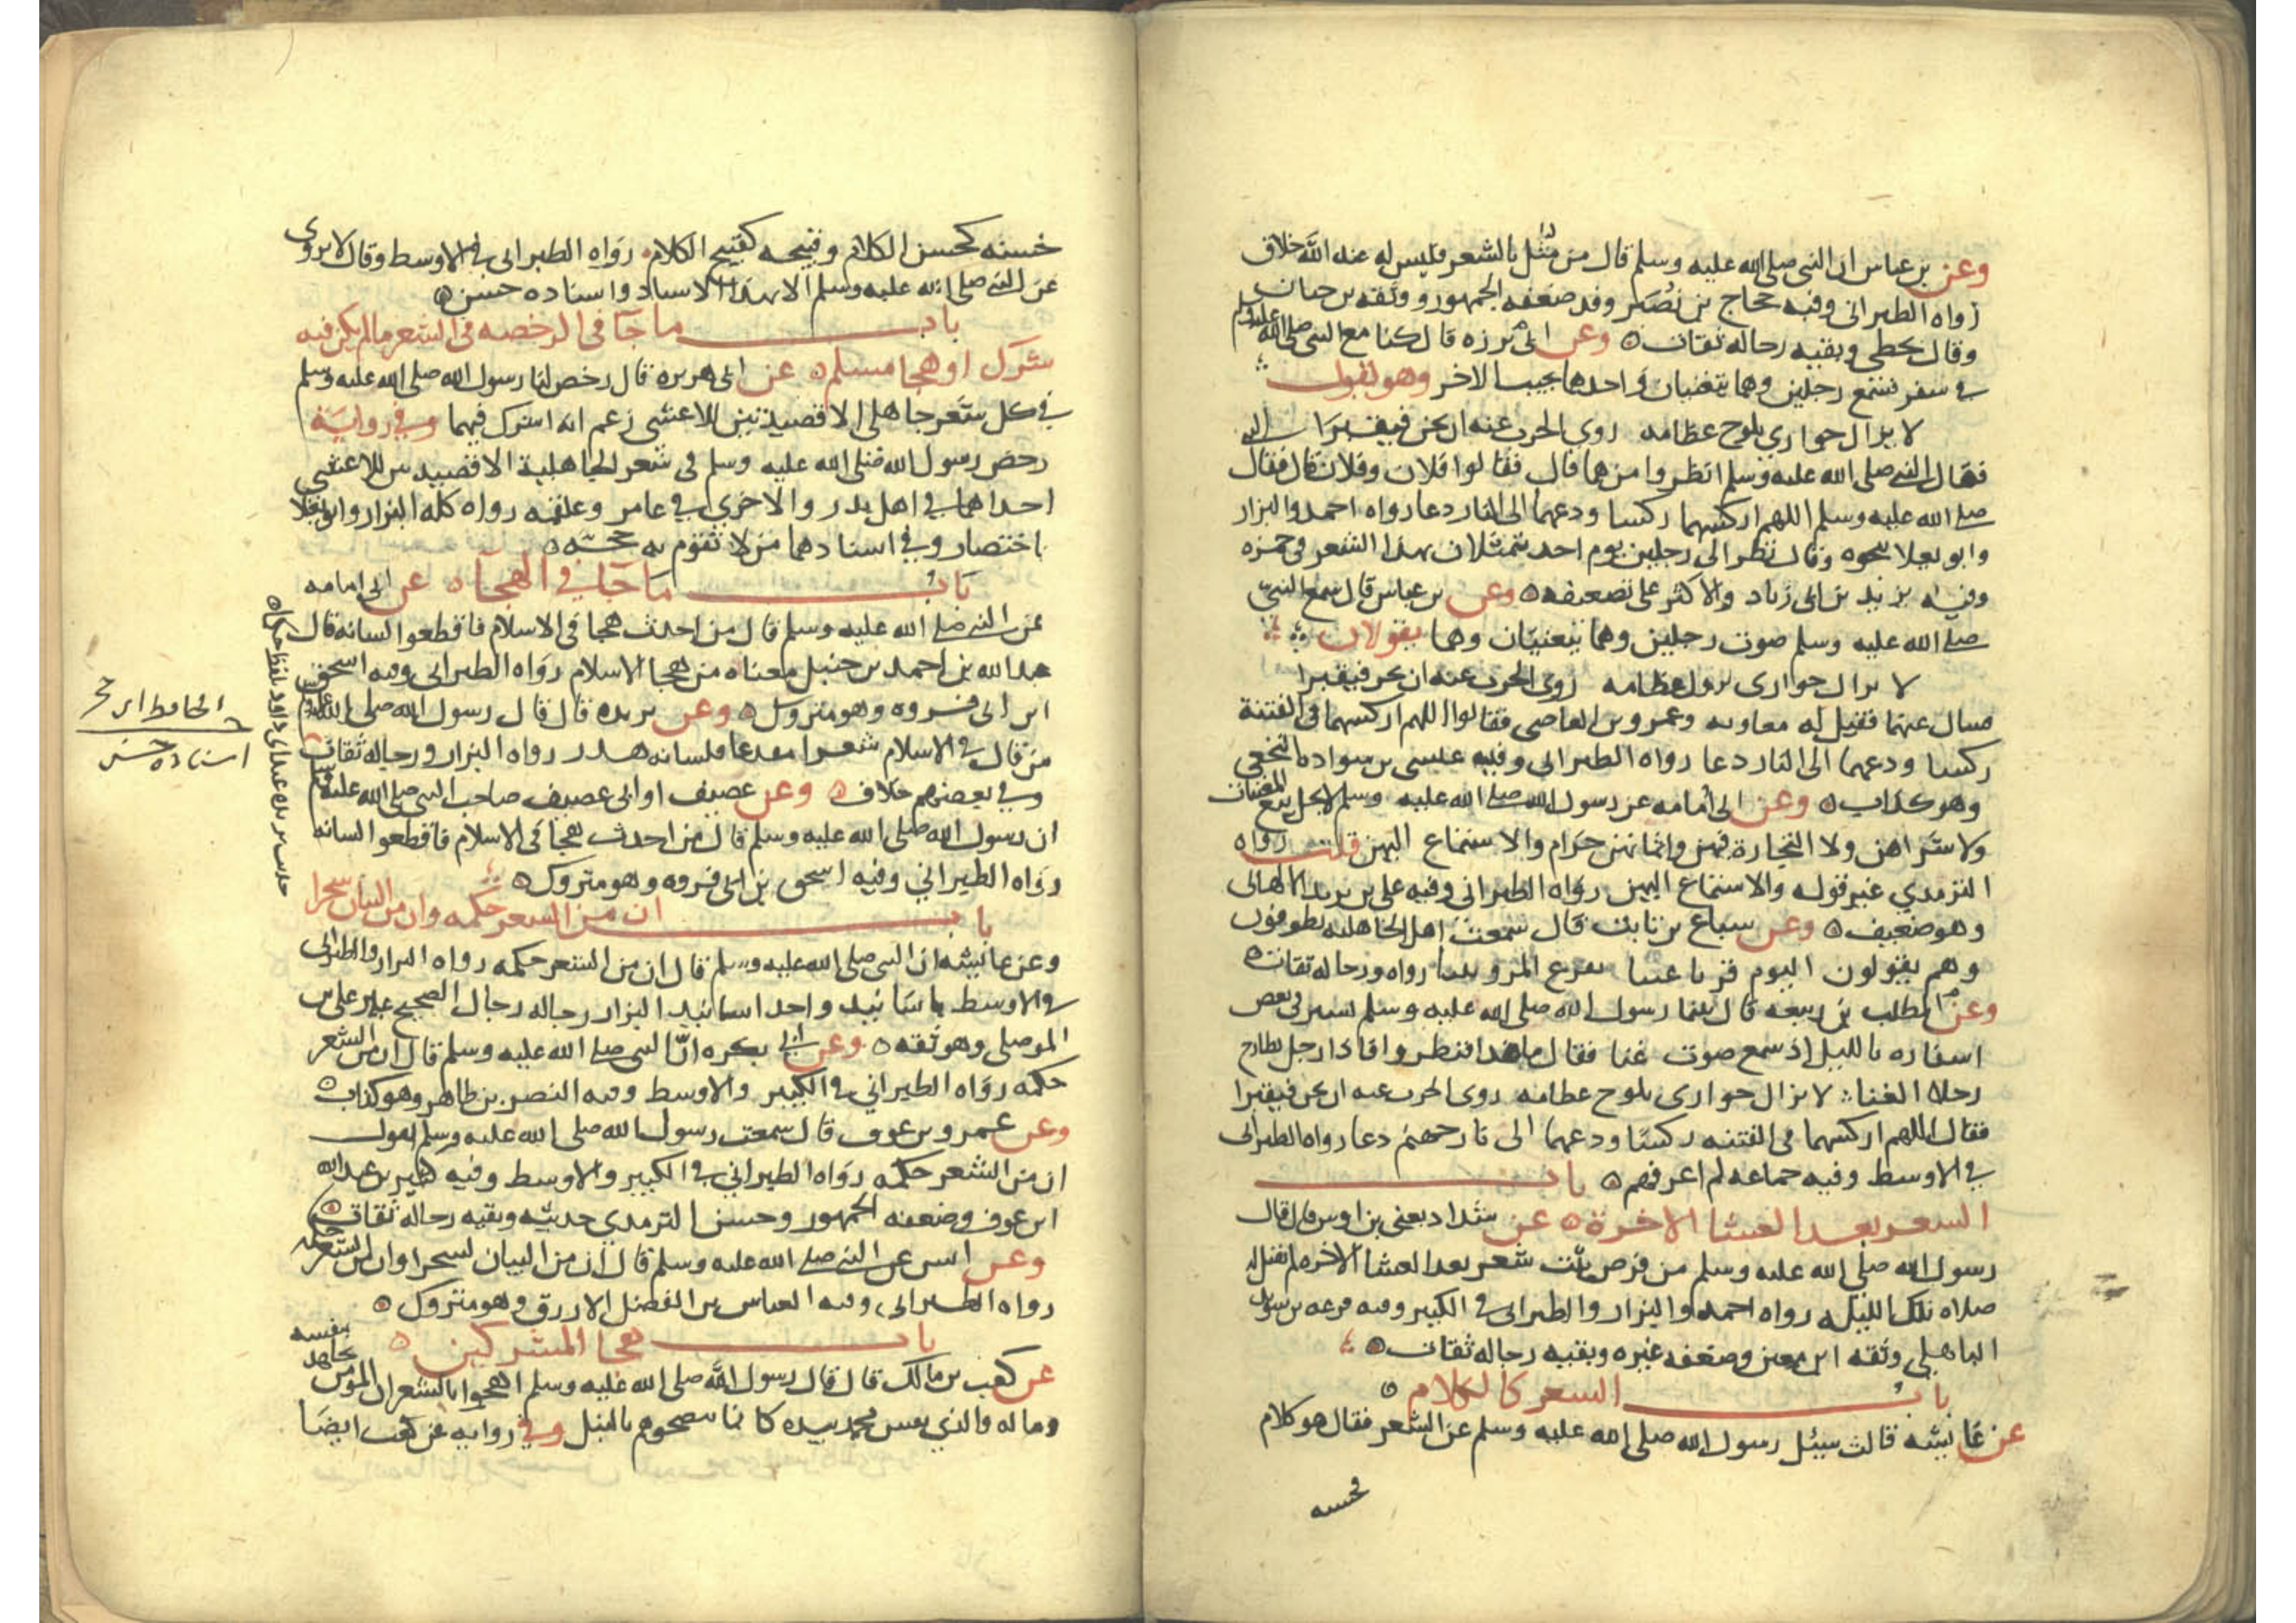 وعن بن عباس ان النبى صلى الله عليه وسلم قال من مثل بالشعر فليس له عند الله خلاق
رواه الطبرانى وفيه حجاج بن نصير وقد ضعفه الجمهور ووثقه بن حبان
وقال يخطى وبقيه رجاله ثقات وعن ابى برزه قال كنا مع النبى صلى الله عليه وسلم
فى سفر فسمع رجلين وهما يتغنيان واحدهما يجيب الاخر وهو يقول
لا يزال حوارى يلوح عظامه زوى الحرب عنه ان يجن فيقبرا
فقال النبى صلى الله عليه وسلم انظروا من هما قال فقالوا فلان وفلان قال فقال
صلى الله عليه وسلم اللهم اركسهما ركسا ودعهما الى النار دعا رواه احمد والبزار
وابو يعلا بنحوه وقال نظر الى رجلين يوم احد يتمثلان بهذا الشعر فى حمزه
وفيه يزيد بن ابى زياد والاكثر على تضعيفه وعن بن عباس قال سمع النبى
صلى الله عليه وسلم صوت رجلين وهما يتغنيان وهما يقولان
لا يزال حوارى يزول عظامه زوى الحرب عنه ان يجن فيقبرا
فسال عنهما فقيل له معاويه وعمرو بن العاصى فقالوا اللهم اركسهما فى الفتنة
ركسا ودعهما الى النار دعا رواه الطبرانى وفيه عيسى بن سواده النخعى
وهو كذاب وعن ابى امامه عن رسول الله صلى الله عليه وسلم لا يحل بيع المغنيات
ولا شراهن ولا التجارة فيهن واثمانهن حرام والاستماع اليهن قلت رواه
الترمدي غير قوله والاستماع اليهن رواه الطبرانى وفيه على بن يزيد الالهانى
وهو ضعيف وعن سباع بن ثابت قال سمعت اهل الجاهليه يطوفون
وهم يقولون اليوم قرنا عينا بقرع المروتينا رواه ورجاله ثقات
وعن المطلب بن ربيعه قال بينما رسول الله صلى الله عليه وسلم يسير فى بعض
اسفاره بالليل اذ سمع صوت غنا فقال ما هذا فنظروا فاذا رجل يطارح
رجلا الغنا لا يزال حوارى يلوح عظامه زوى الحرب عنه ان يجن فيقبرا
فقال اللهم اركسهما فى الفتنه ركسا ودعهما الى نار جهنم دعا رواه الطبرانى
في الاوسط وفيه جماعه لم اعرفهم باب
الشعر بعد العشا الاخرة عن شداد يعنى بن اوس قال قال
رسول الله صلى الله عليه وسلم من قرض بيت شعر بعد العشا الاخره لم تقبل له
صلاه تلك الليله رواه احمد والبزار والطبرانى فى الكبير وفيه قزعه بن سويد
الباهلى وثقه ابن معين وضعفه غيره وبقيه رجاله ثقات
باب الشعر كالكلام
عن عايشه قالت سيئل رسول الله صلى الله عليه وسلم عن الشعر فقال هو كلام
فحسنه
حسنه كحسن الكلام وقبيحه كقبيح الكلام رواه الطبرانى فى الاوسط وقال لا يروى
عن النبى صلى الله عليه وسلم الا بهذا الاسناد واسناده حسن
باب ما جآ فى الرخصه فى الشعر ما لم يكن فيه
شرك او هجا مسلم عن ابى هريره قال رخص لنا رسول الله صلى الله عليه وسلم
فى كل شعر جاهلى الا قصيدتين للاعشى زعم انه اشرك فيهما وفى رواية
رخص رسول الله صلى الله عليه وسلم فى شعر الجاهلية الا قصيدتين للاعشى
احداهما فى اهل بدر والاخرى فى عامر وعلقمه رواه كله البزار وابو يعلا
باختصار وفى اسنادهما من لا تقوم به حجه
باب ما جآ في الهجآ عن ابى امامه
عن النبى صلى الله عليه وسلم قال من احدث هجا فى الاسلام فاقطعوا لسانه قال
عبد الله بن احمد بن حنبل معناه من هجا الاسلام رواه الطبرانى وفيه اسحق
ابن ابى فروه وهو متروك وعن بريده قال قال رسول الله صلى الله عليه وسلم
من قال فى الاسلام شعرا مقذعا فلسانه هدر رواه البزار ورجاله ثقات
وفى بعضهم خلاف وعن عصيف او ابى عصيف صاحب النبى صلى الله عليه وسلم
ان رسول الله صلى الله عليه وسلم قال من احدث هجا فى الاسلام فاقطعوا لسانه
رواه الطبراني وفيه اسحق بن ابى فروه وهو متروك
باب ان من الشعر حكمه وان من البيان سحرا
وعن عايشه ان النبى صلى الله عليه وسلم قال ان من الشعر حكمه رواه البزار والطبرانى
فى الاوسط باسانيد واحد اسانيد البزار رجاله رجال الصحيح غير على بن
الموصلى وهو ثقه وعن ابى بكره ان النبى صلى الله عليه وسلم قال ان من الشعر
حكمه رواه الطبراني فى الكبير والاوسط وفيه النصر بن طاهر وهو كذاب
وعن عمرو بن عوف قال سمعت رسول الله صلى الله عليه وسلم يقول
ان من الشعر حكمه رواه الطبراني فى الكبير والاوسط وفيه كثير بن عبد الله
ابن عوف وضعفه الجمهور وحسن الترمدى حديثه وبقيه رجاله ثقات
وعن انس عن النبى صلى الله عليه وسلم قال ان من البيان لسحرا وان من الشعر حكمه
رواه الطبرانى وفيه العباس بن الفضل الازرق وهو متروك
باب هجا المشركين
عن كعب بن مالك قال قال رسول الله صلى الله عليه وسلم اهجوا بالشعر ان المومن يجاهد بنفسه
وماله والذي نفس محمد بيده كانما تنضحوهم بالنبل وفى روايه عن كعب ايضا
الحافظ ابن حجر
اسناده حسن